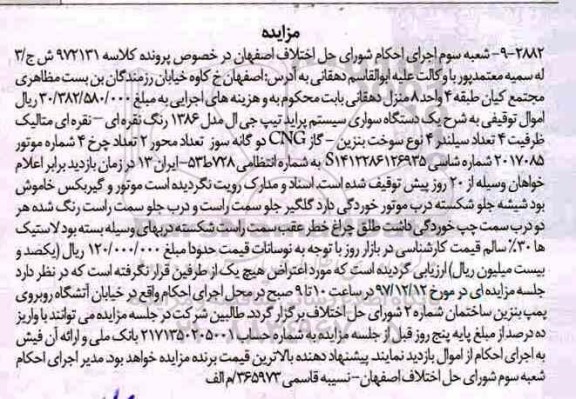 مزایده
۲۸۸۲-۹- شعبه سوم اجرای احکام شورای حل اختلاف اصفهان در خصوص پرونده کلاسه ۹۷۲۱۳۱ ش ج/۳
له سمیه معتمدپور با وکالت علیه ابوالقاسم دهقانی به آدرس: اصفهان خ کاوه خیابان رزمندگان بن بست مظاهری
مجتمع کیان طبقه ۴ واحد ۸ منزل دهقانی بابت محکوم به و هزینه های اجرایی به مبلغ ۳۰/۳۸۲/۵۸۰/۰۰۰ ریال
اموال توقیفی به شرح یک دستگاه سواری سیستم پراید تیپ جی ال مدل ۱۳۸۶ رنگ نقره ای - نقره ای متالیک
ظرفیت ۴ تعداد سیلندر ۴ نوع سوخت بنزین - گاز CNG دو گانه سوز تعداد محور ۲ تعداد چرخ ۴ شماره موتور
۲۰۱۷۰۸۵ شماره شاسی S۱۴۱۲۲۸۶۱۲۶۹۳۵ به شماره انتظامی ۷۲۸ط۵۳-ایران ۱۳ در زمان بازدید برابر اعلام
خواهان وسیله از ۲۰ روز پیش توقیف شده است. اسناد و مدارک رویت نگردیده است موتور و گیربکس خاموش
بود شیشه جلو شکسته درب موتور خوردگی دارد گلگیر جلو سمت راست و درب جلو سمت راست رنگ شده هر
دو درب سمت چپ خوردگی داشت طلق چراغ خطر عقب سمت راست شکسته دربهای وسیله بسته بود لاستیک
ها ۳۰٪ سالم قیمت کارشناسی در بازار روز با توجه به نوسانات قیمت حدودا مبلغ ۱۲۰/۰۰۰/۰۰۰ ریال (یکصد و
بیست میلیون ریال) ارزیابی گردیده است که مورد اعتراض هیچ یک از طرفین قرار نگرفته است که در نظر دارد
جلسه مزایده ای در مورخ ۹۷/۱۲/۱۲ در ساعت ۱۰ تا ۹ صبح در محل اجرای احکام واقع در خیابان آتشگاه روبروی
پمپ بنزین ساختمان شماره ۲ شورای حل اختلاف برگزار گردد. طالبین شرکت در جلسه مزایده می توانند با واریز
ده درصد از مبلغ پایه پنج روز قبل از جلسه مزایده به شماره حساب ۲۱۷۱۳۵۰۲۰۵۰۰۱ بانک ملی و ارائه آن فیش
به اجرای احکام از اموال بازدید نمایند. پیشنهاد دهنده بالاترین قیمت برنده مزایده خواهد بود. مدیر اجرای احکام
شعبه سوم شورای حل اختلاف اصفهان - نسیبه قاسمی ۳۶۵۹۷۳/م الف